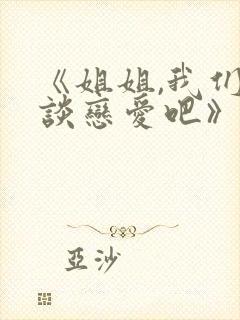 《姐姐,我们
談戀愛吧》
亞沙